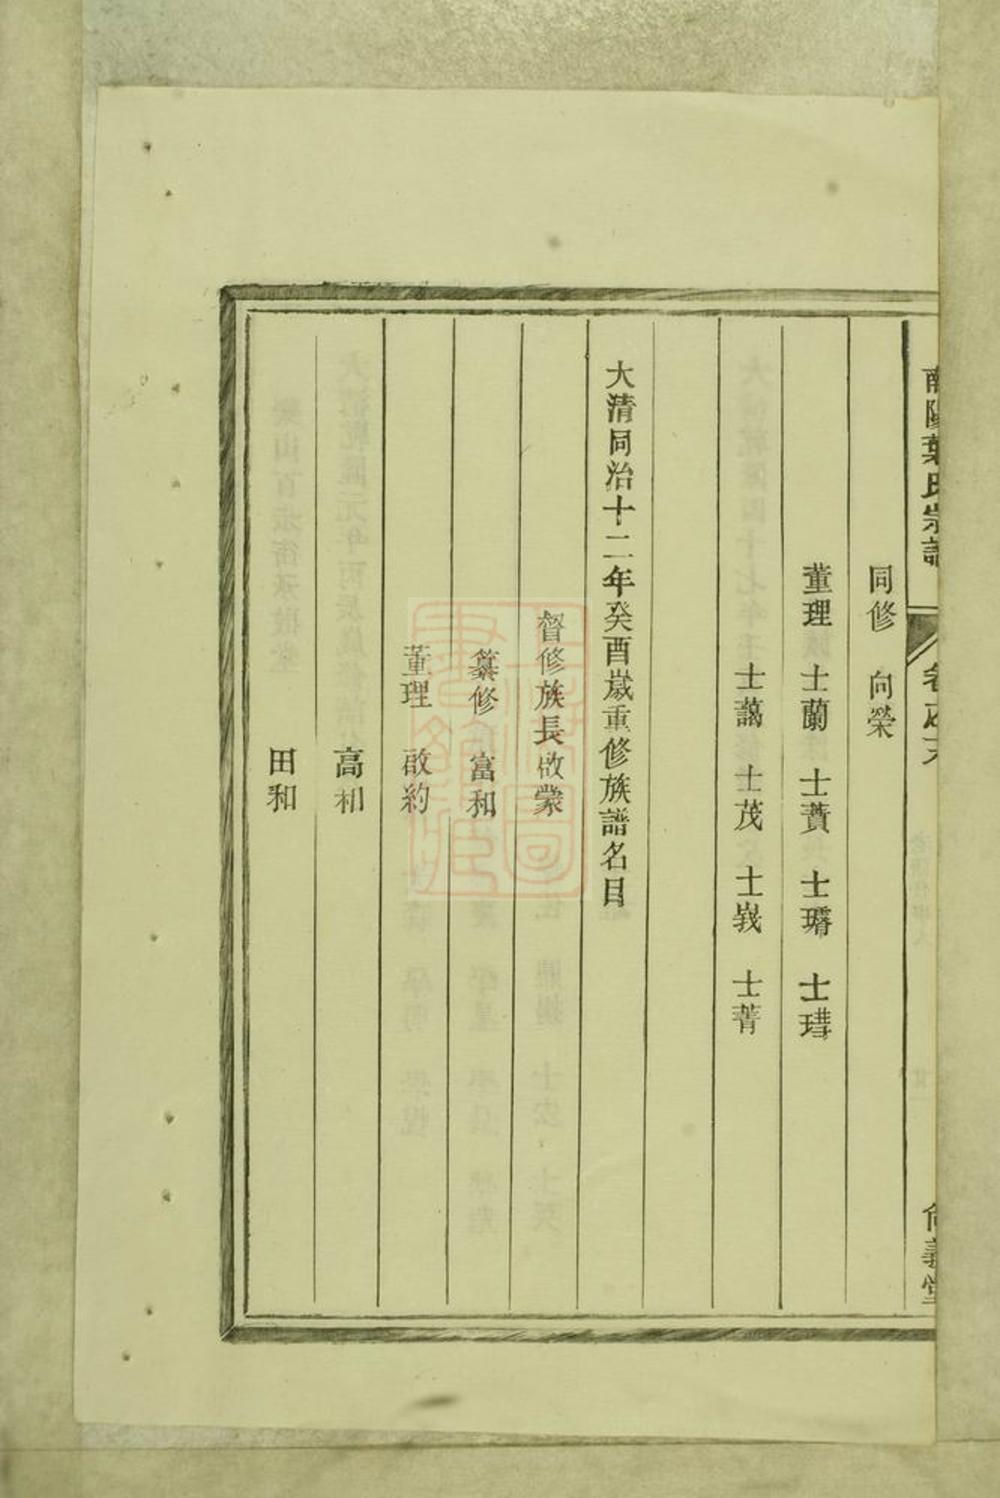 南陽葉氏宗譜
尚義堂
同修 向榮
董理 士蘭 士蕡 士璿 士琽
士藹 士茂 士峩 士菁
大清同治十二年癸酉歲重修族譜名目
督修族長啟蒙
纂修 富和
董理 啟約
高和
田和